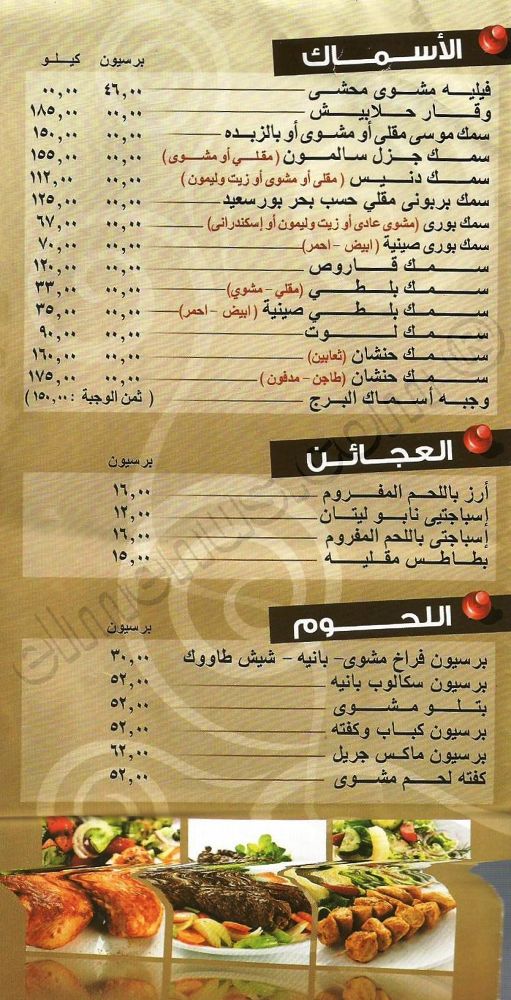 الأسماك
برسيون كيلو
فيليه مشوى محشى ٤٦,٠٠ ٠٠,٠٠
وقار حلابيش ٠٠,٠٠ ١٨٥,٠٠
سمك موسى مقلى أو مشوى أو بالزبده ٠٠,٠٠ ١٥٠,٠٠
سمك جزل سالمون (مقلي أو مشوى) ٠٠,٠٠ ١٥٥,٠٠
سمك دنيس (مقلى أو مشوى أو زيت وليمون) ٠٠,٠٠ ١١٢,٠٠
سمك بربونى مقلي حسب بحر بورسعيد ٠٠,٠٠ ١٢٥,٠٠
سمك بورى (مشوي عادى أو زيت وليمون أو إسكندرانى) ٠٠,٠٠ ٦٧,٠٠
سمك بورى صينية (ابيض - احمر) ٠٠,٠٠ ٧٠,٠٠
سمك قاروص ٠٠,٠٠ ١٢٠,٠٠
سمك بلطي (مقلي - مشوي) ٠٠,٠٠ ٣٣,٠٠
سمك بلطي صينية (ابيض - احمر) ٠٠,٠٠ ٣٥,٠٠
سمك لوت ٠٠,٠٠ ٩٠,٠٠
سمك حنشان (ثعابين) ٠٠,٠٠ ١٦٠,٠٠
سمك حنشان (طاجن - مدفون) ٠٠,٠٠ ١٧٥,٠٠
وجبه أسماك البرج (ثمن الوجبة : ١٥٠,٠٠)
العجائن
برسيون
أرز باللحم المفروم ١٦,٠٠
إسباجتيى نابو ليتان ١٢,٠٠
إسباجتى باللحم المفروم ١٦,٠٠
بطاطس مقليه ١٥,٠٠
اللحوم
برسيون
برسيون فراخ مشوى- بانيه - شيش طاووك ٣٠,٠٠
برسيون سكالوب بانيه ٥٢,٠٠
بتلو مشوى ٥٢,٠٠
برسيون كباب وكفته ٥٢,٠٠
برسيون ماكس جريل ٦٢,٠٠
كفته لحم مشوى ٥٢,٠٠
elmenus.com ©